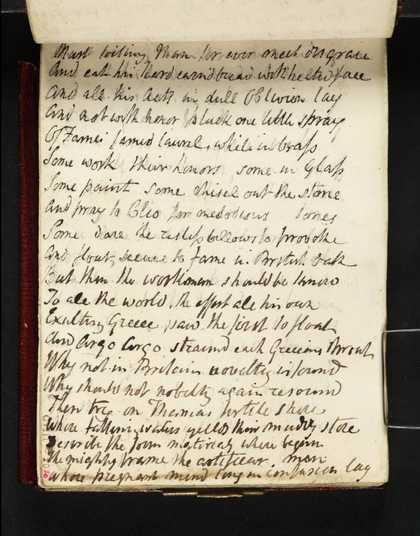 Must toiling Man for ever meet disgrace
And eat his hard earnd bread with face
And all his acts in dull Oblivion lay
And not with honor pluck one little spray
Of Fames famed laurel, while in brass
Some work their honors some in Glass
Some paint some chisel out the stone
And pray to Clio for melodious tones
Some dare the restless billows to provoke
And float secure to fame in British oak
But then the workman should be known
To all the world, the effort all his own
Exulting Greece, saw the first to float
And Argo Argo straind each Grecians throat
Why not in Britain novelty is found
Why should not nobelty again resound
Then try on Thamesis fertile shore
Where falling waters yields their muddy store
Describe the form materials where begun
The mighty frame the artificer. man
Whose pregnant mind long in confusion lay